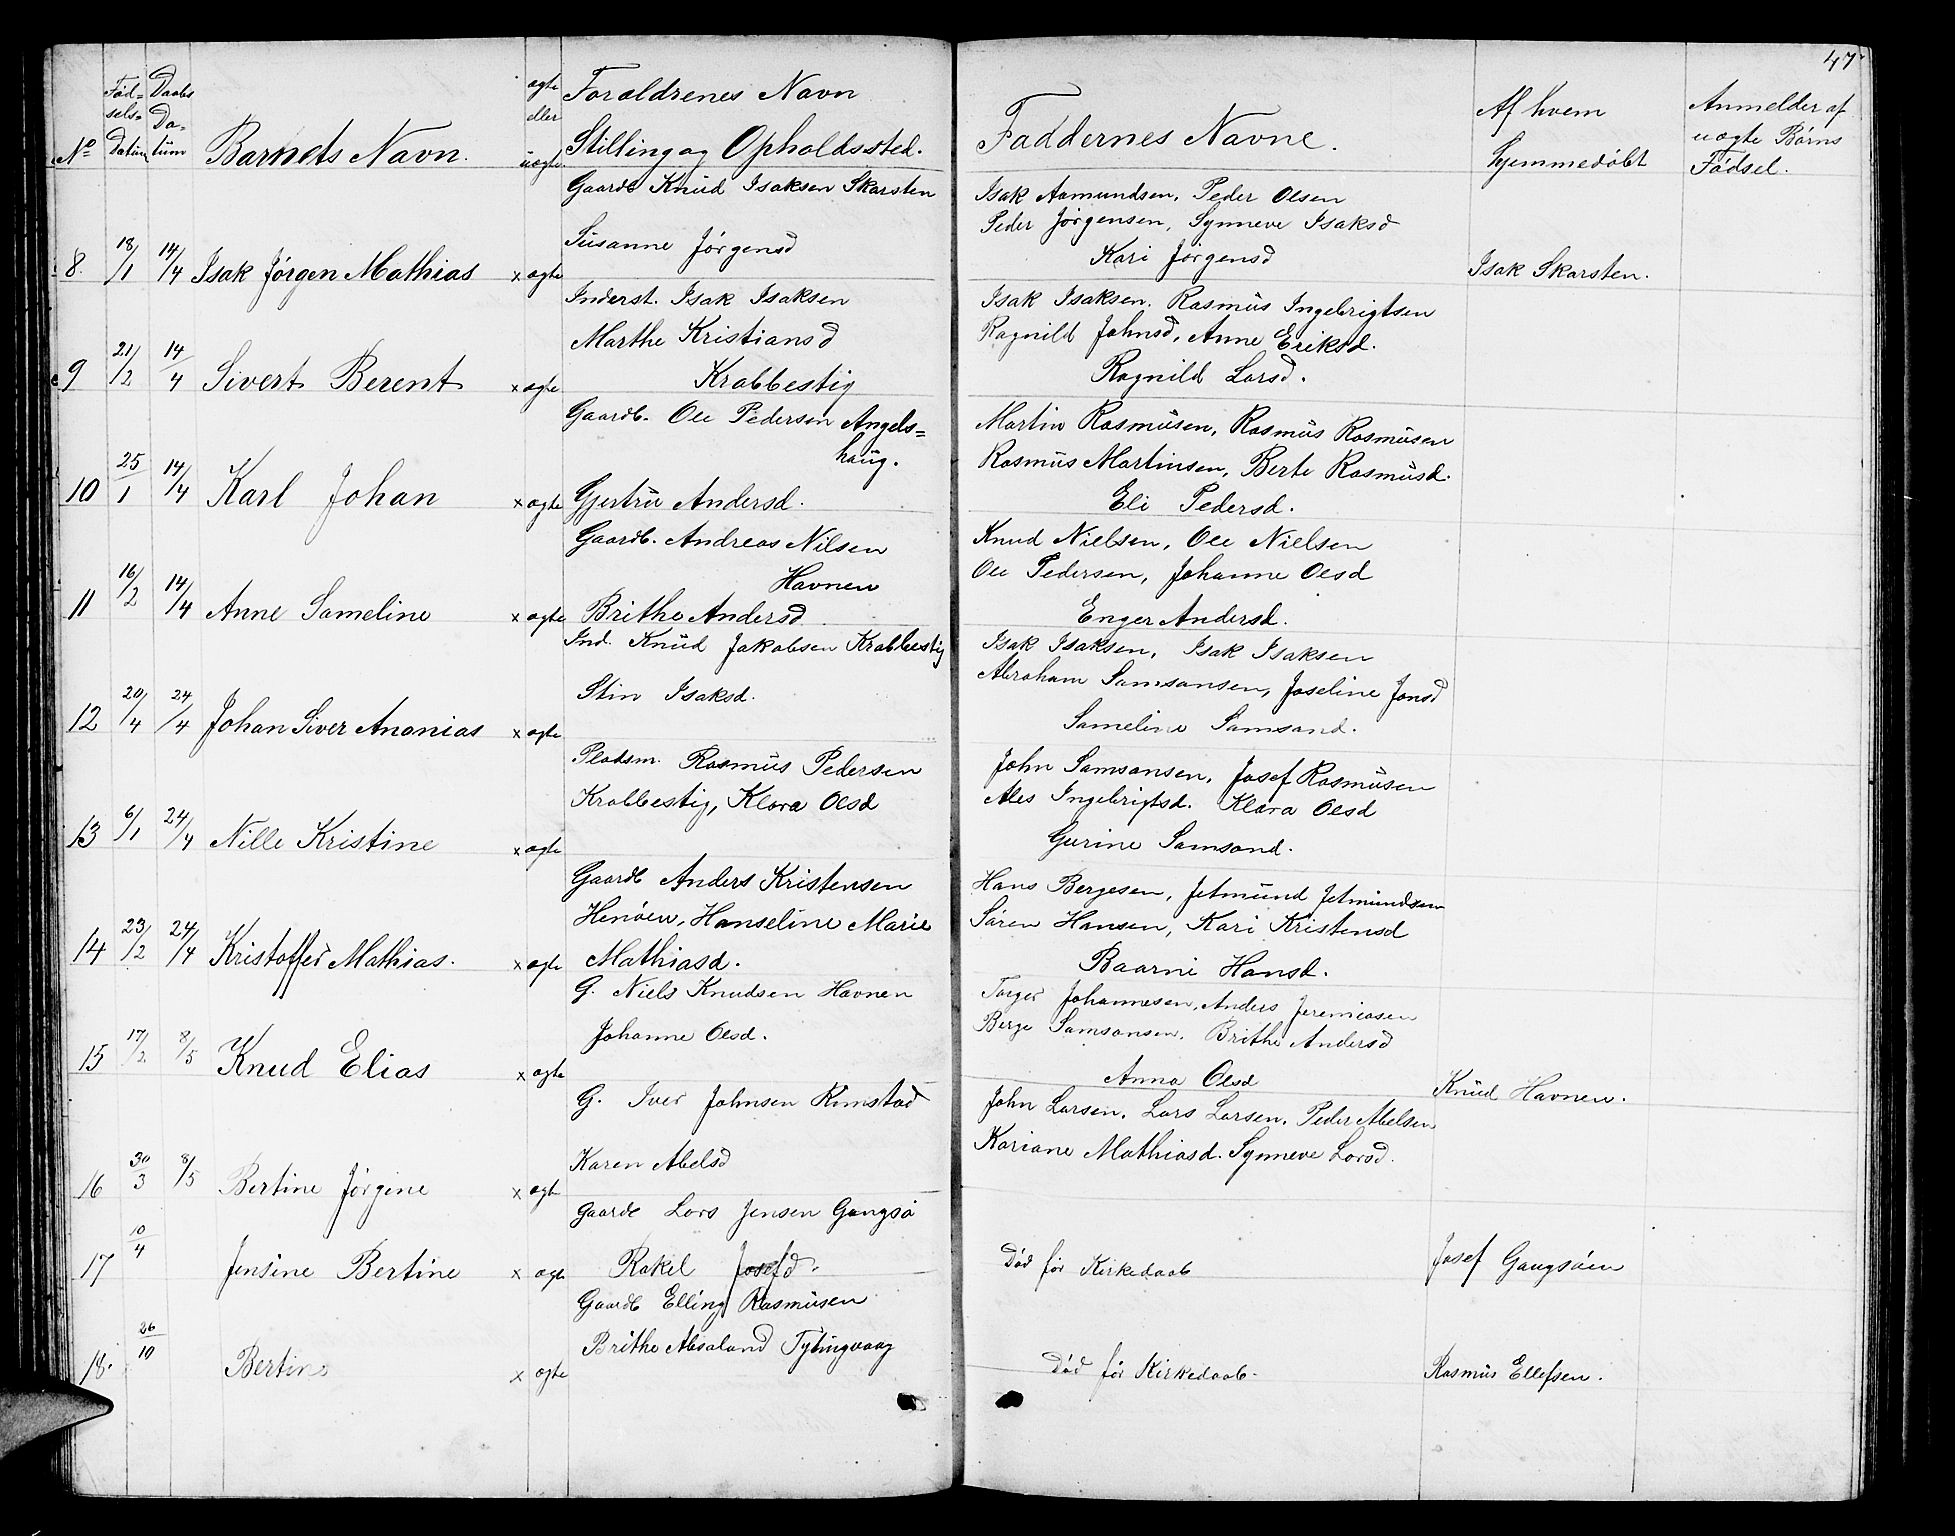 47
No
Fødsels=Datum
Daabs Datum
Barnets Navn.
ægte eller uægte.
Forældrenes Navn
Stilling og Opholdssted.
Faddernes Navne.
Af hvem
hjemmedøbt
Anmelder af
uægte Børns
Fødsel.
Gaardb Knud Isaksen Skarsten
Isak Aamundsen, Peder Olsen
Susanne Jørgensd
Peder Jørgensen, Synneve Isaksd
8. 18/1 14/4 Isak Jørgen Mathias x ægte
Kari Jørgensd
Isak Skarsten.
Inderst. Isak Isaksen
Isak Isaksen, Rasmus Ingebrigtsen
Marthe Kristiansd
Ragnild Johnsd, Anne Eriksd.
9 21/2 14/4 Sivert Berent x ægte Krabbestig
Ragnild Larsd.
Gaardb. Ole Pedersen Angels=
haug.
Martin Rasmusen, Rasmus Rasmusen
Rasmus Martinsen, Berte Rasmusd.
10 25/1 14/4 Karl Johan x ægte Gjertru Andersd.
Eli Pedersd.
Gaardb. Andreas Nilsen
Knud Nielsen, Ole Nielsen
Havnen
Ole Pedersen, Johanne Olsd
11 16/2 14/4 Anne Sameline x ægte Brithe Andersd
Enger Andersd.
Ind. Knud Jakobsen Krabbestig
Isak Isaksen, Isak Isaksen
Stin Isaksd.
Abraham Samsonsen, Joseline Jonsd
12 20/4 24/4 Johan Siver Ananias x ægte
Sameline Samsond.
Pladsm. Rasmus Pedersen
John Samsonsen, Josef Rasmusen
Krabbestig, Klara Olsd
Ales Ingebrigtsd. Klara Olsd
13 6/1 24/4 Nille Kristine x ægte
Gurine Samsond.
Gaardb Anders Kristensen
Hans Bergesen, Jetmund Jetmundsen
Henøen, Hanseline Marie
Søren Hansen, Kari Kristensd
14 23/2 24/4 Kristoffer Mathias. x ægte Mathiasd.
Baarni Hansd.
G. Niels Knudsen Havnen
Torger Johannesen, Anders Jeremiasen
Johanne Olsd.
Berge Samsonsen, Brithe Andersd
15 17/2 8/5 Knud Elias x ægte
Anna Olsd
Knud Havnen.
G. Iver Johnsen Rimstad
John Larsen, Lars Larsen, Peder Abelsen
Karen Abelsd
Kariane Mathiasd. Synneve Larsd.
16 30/3 8/5 Bertine Jørgine x ægte
Gaardb Lars Jensen Gangsø
17 10/4 Jensine Bertine x ægte Rakel Josefd.
Død før Kirkedaab
Josef Gangsøen
Gaardb Elling Rasmusen
Brithe Absaland Tytingvaag
18. 26/10 Bertine x ægte
Død før Kirkedaab.
Rasmus Ellefsen.